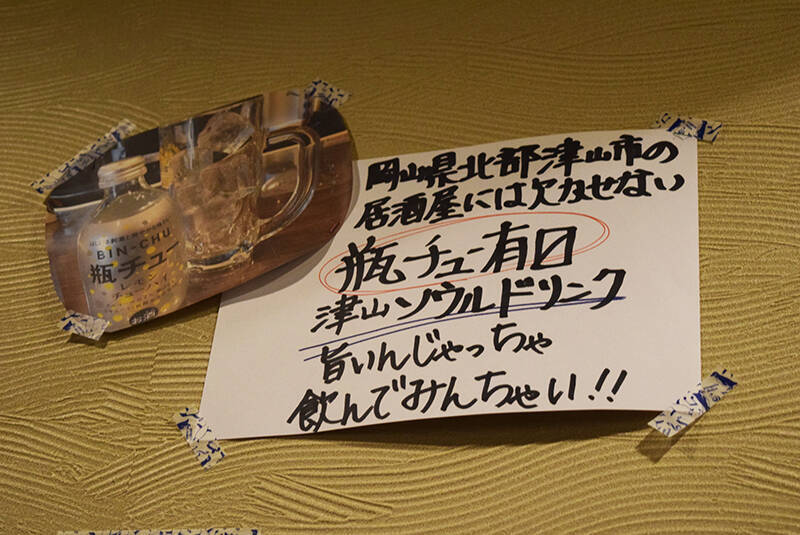 BIN-CHU
瓶チュー
レモンハイ
お酒
岡山県北部津山市の
居酒屋には欠かせない
瓶チュー有口
津山ソウルドリンク
旨いんじゃっちゃ
飲んでみんちゃい!!